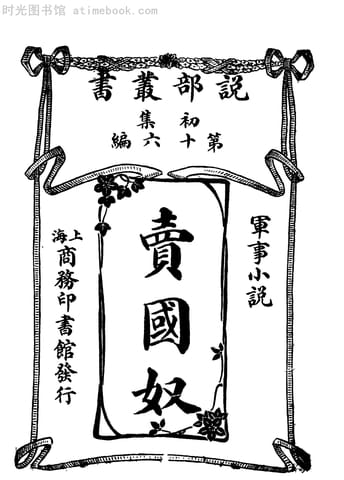 时光图书馆 @ atimebook.com
説部叢書
初集
第十六編
軍事小説
賣國奴
上海
商務印書館發行